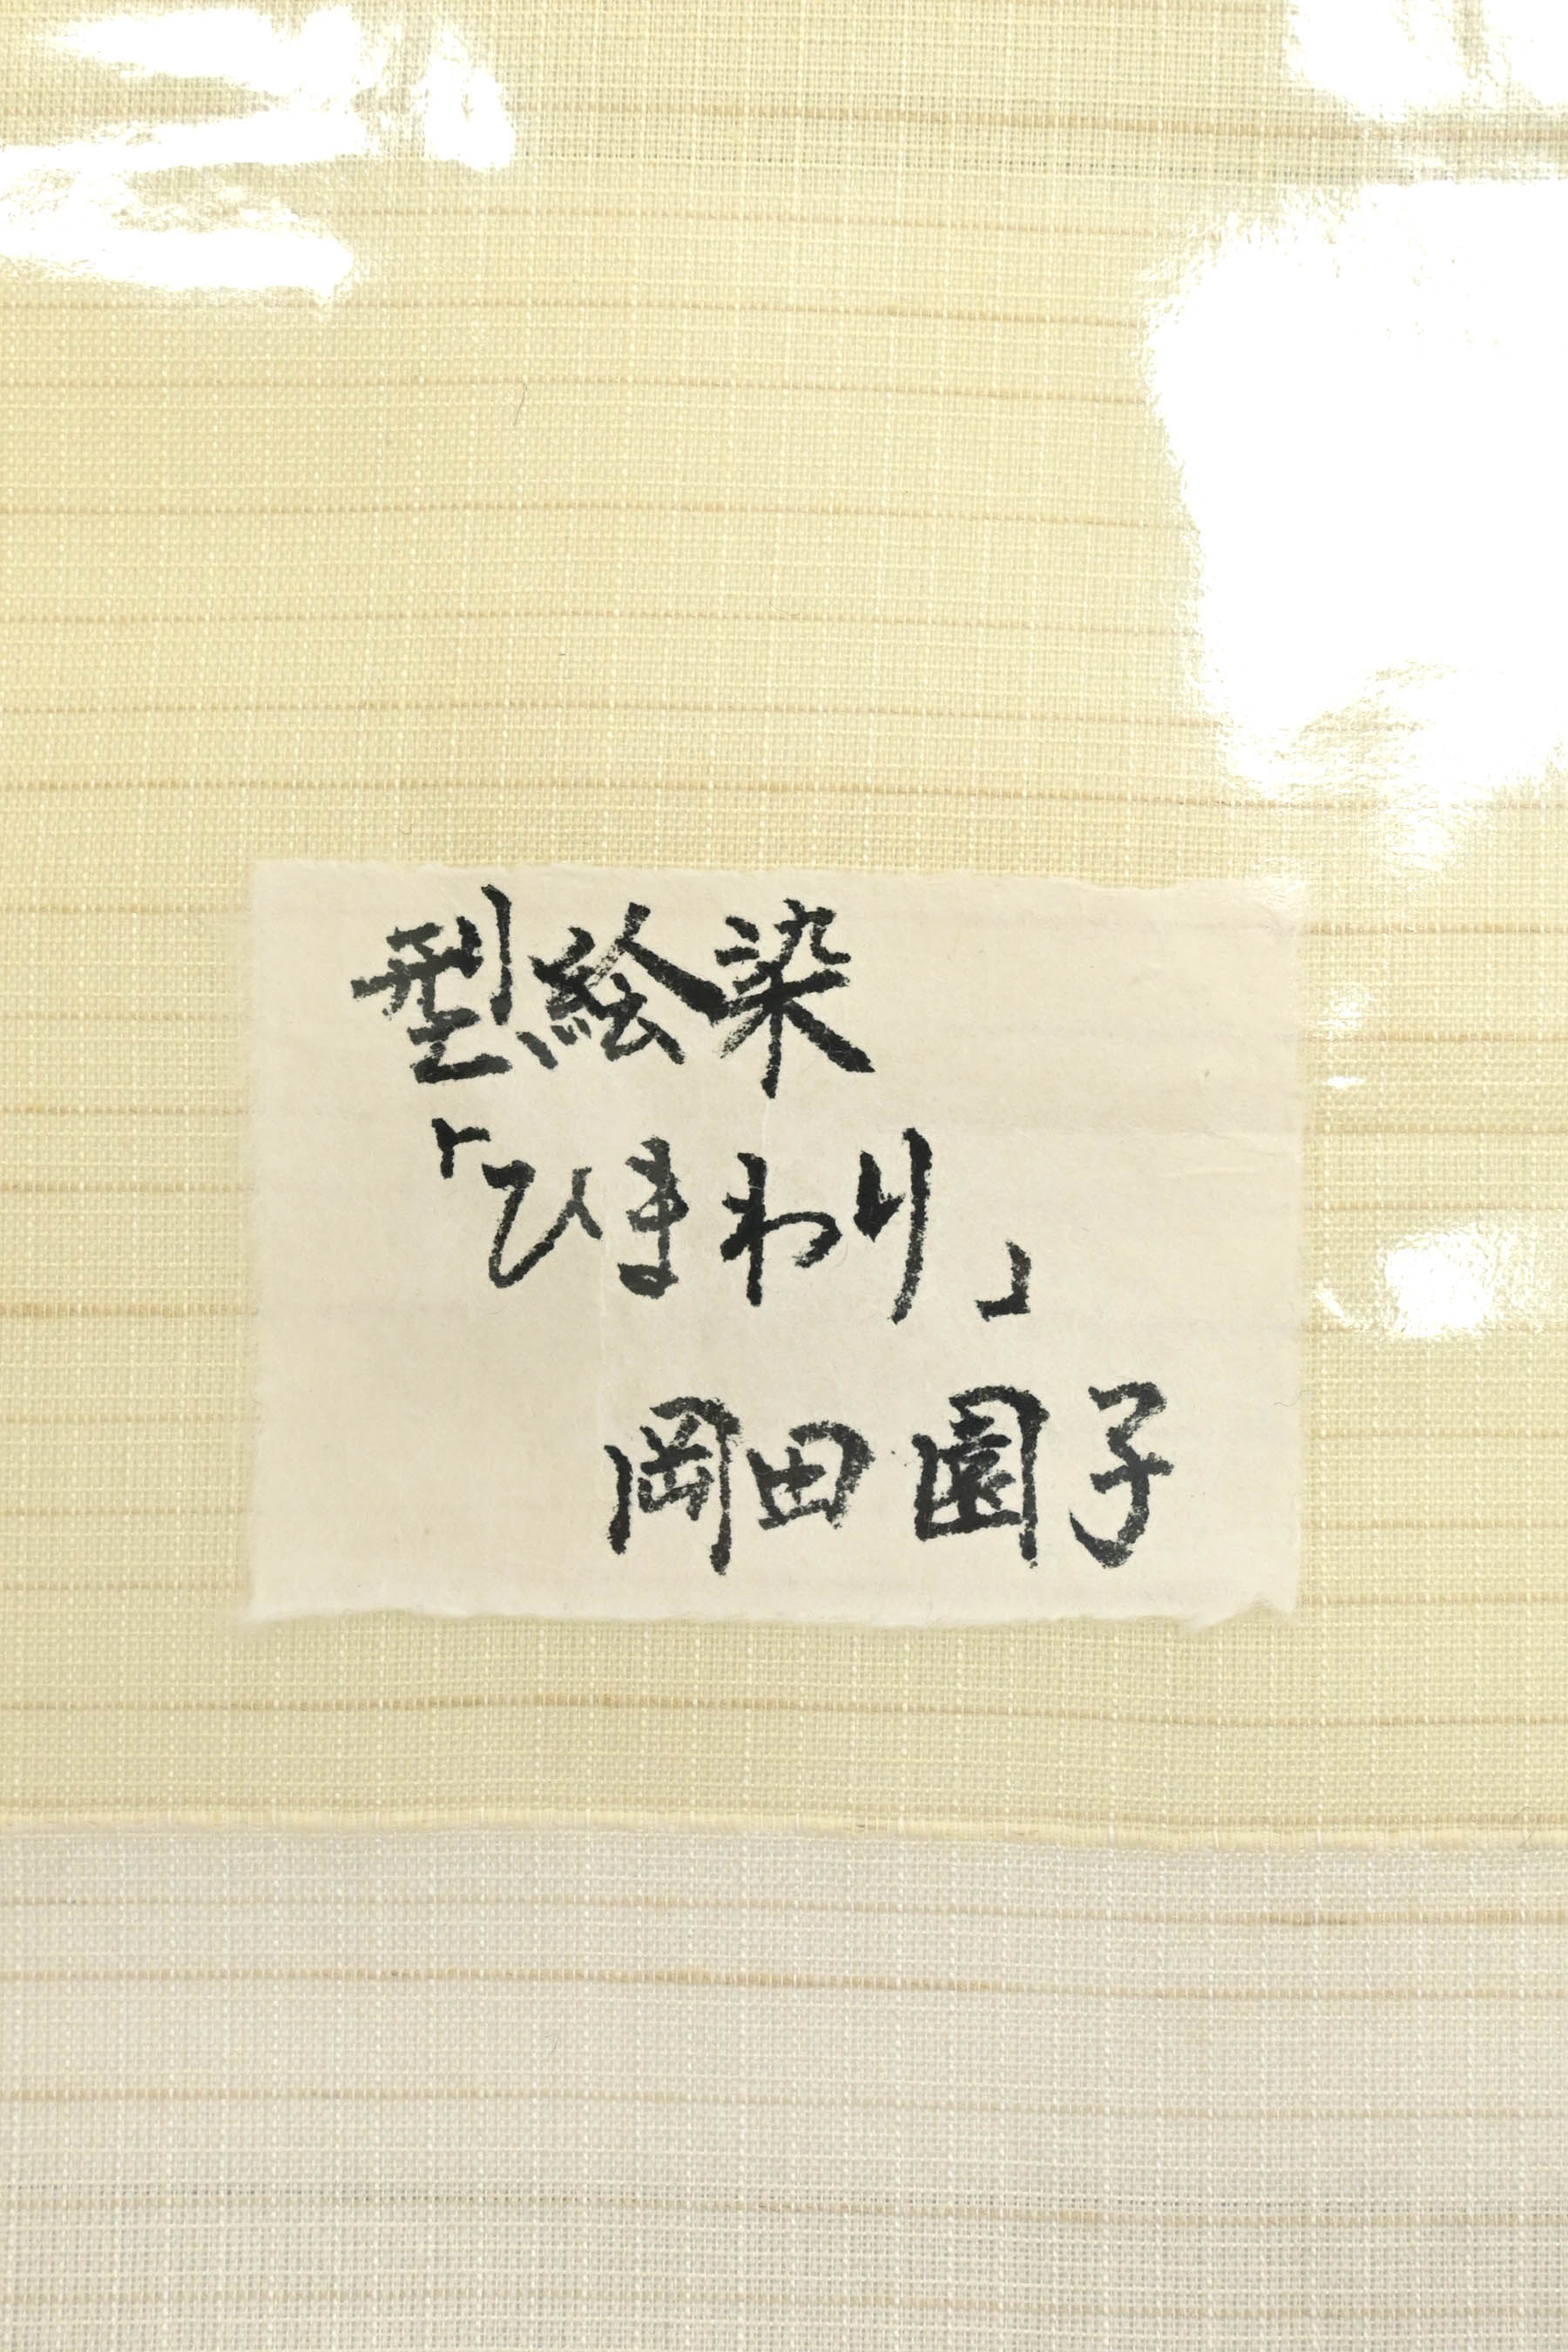 型絵染
「ひまわり」
岡田園子